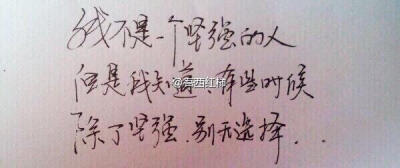 我不是一个坚强的人
但是我知道、有些时候
除了坚强.别无选择...
@有西红柿